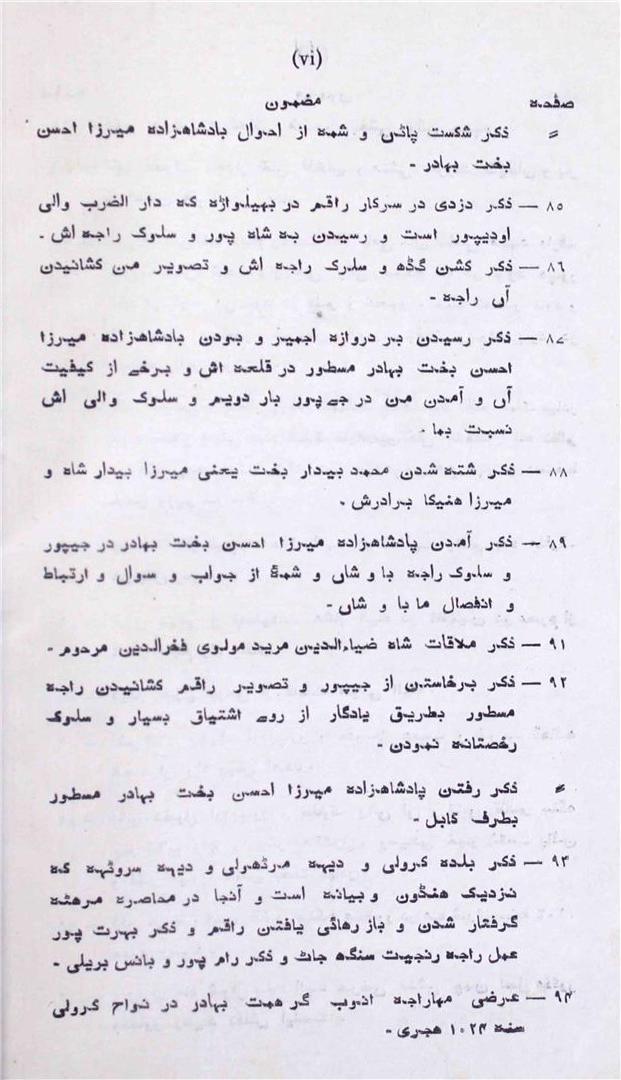 (vi)
صفحه مضمون
〃 ذکر شکست پاٹن و شمۀ از احوال بادشاهزاده میرزا احسن
بخت بهادر -
۸۵ — ذکر دزدی در سرکار راقم در بهیلواڑه که دار الضرب والی
اودیپور است و رسیدن به شاه پور و سلوک راجه اش -
۸۶ — ذکر کشن گڈه و سلوک راجه اش و تصویر من کشانیدن
آں راجه -
۸۷ — ذکر رسیدن بر دروازه اجمیر و بودن بادشاهزاده میرزا
احسن بخت بهادر مسطور در قلعه اش و برخے از کیفیت
آں و آمدن من در جے پور بار دویم و سلوک والی اش
نسبت بما -
۸۸ — ذکر شته شدن محمد بیدار بخت یعنی میرزا بیدار شاه و
میرزا هنیگا برادرش -
۸۹ — ذکر آمدن پادشاهزاده میرزا احسن بخت بهادر در جیپور
و سلوک راجه با و شاں و شمۀ از جواب و سوال و ارتباط
و انفصال ما با و شاں -
۹۱ — ذکر ملاقات شاه ضیاءالدین مرید مولوی فخرالدین مرحوم -
۹۲ — ذکر برخاستن از جیپور و تصویر راقم کشانیدن راجه
مسطور بطریق یادگار از روے اشتیاق بسیار و سلوک
رخصتانه نمودن -
〃 ذکر رفتن پادشاهزاده میرزا احسن بخت بهادر مسطور
بطرف کابل -
۹۳ — ذکر بلده کرولی و دیهه مرڈهولی و دیهه سروٹهه که
نزدیک هنڈون و بیانه است و آنجا در محاصره مرهٹه
گرفتار شدن و باز رهائی یافتن راقم و ذکر بهرت پور
عمل راجه رنجیت سنگه جاٹ و ذکر رام پور و بانس بریلی -
۹۴ — عرضی مهاراجه انوب گر همت بهادر در نواح کرولی
سنه ۱۰۲۴ هجری -